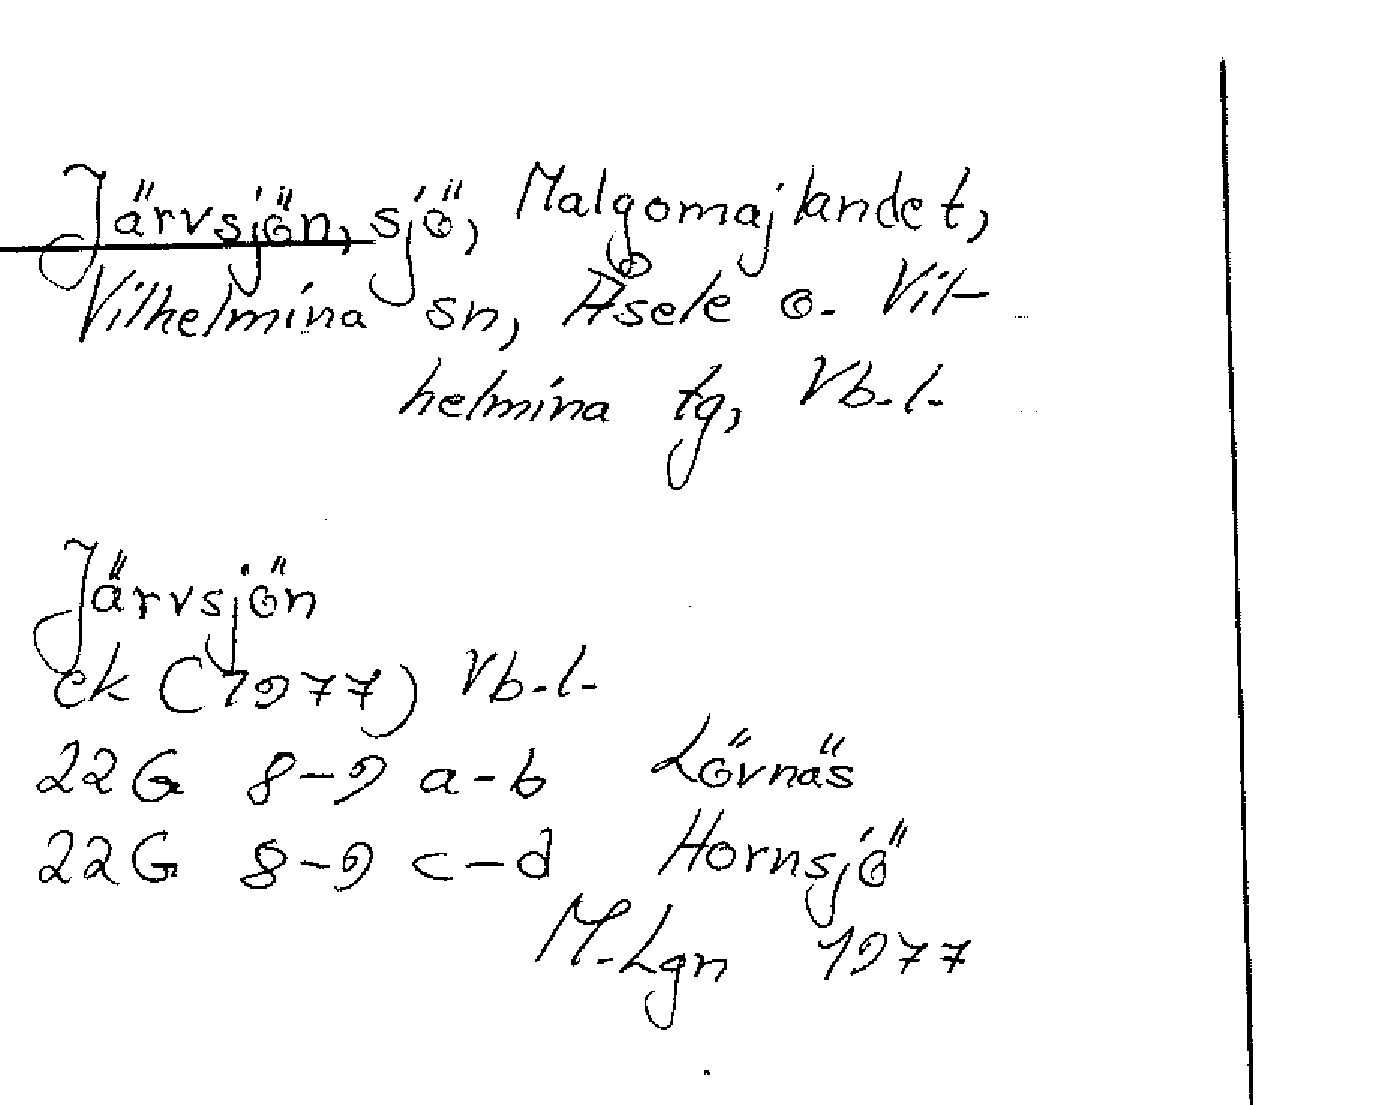 Järvsjön, sjö, Malgomajlandet,
Vilhelmina sn, Åsele o. Vil-
helmina tg, Vb.l.
Järvsjön
ek (1977) Vb.l.
22G 8-9 a-b Lövnäs
22G 8-9 c-d Hornsjö
M.Lgn 1977